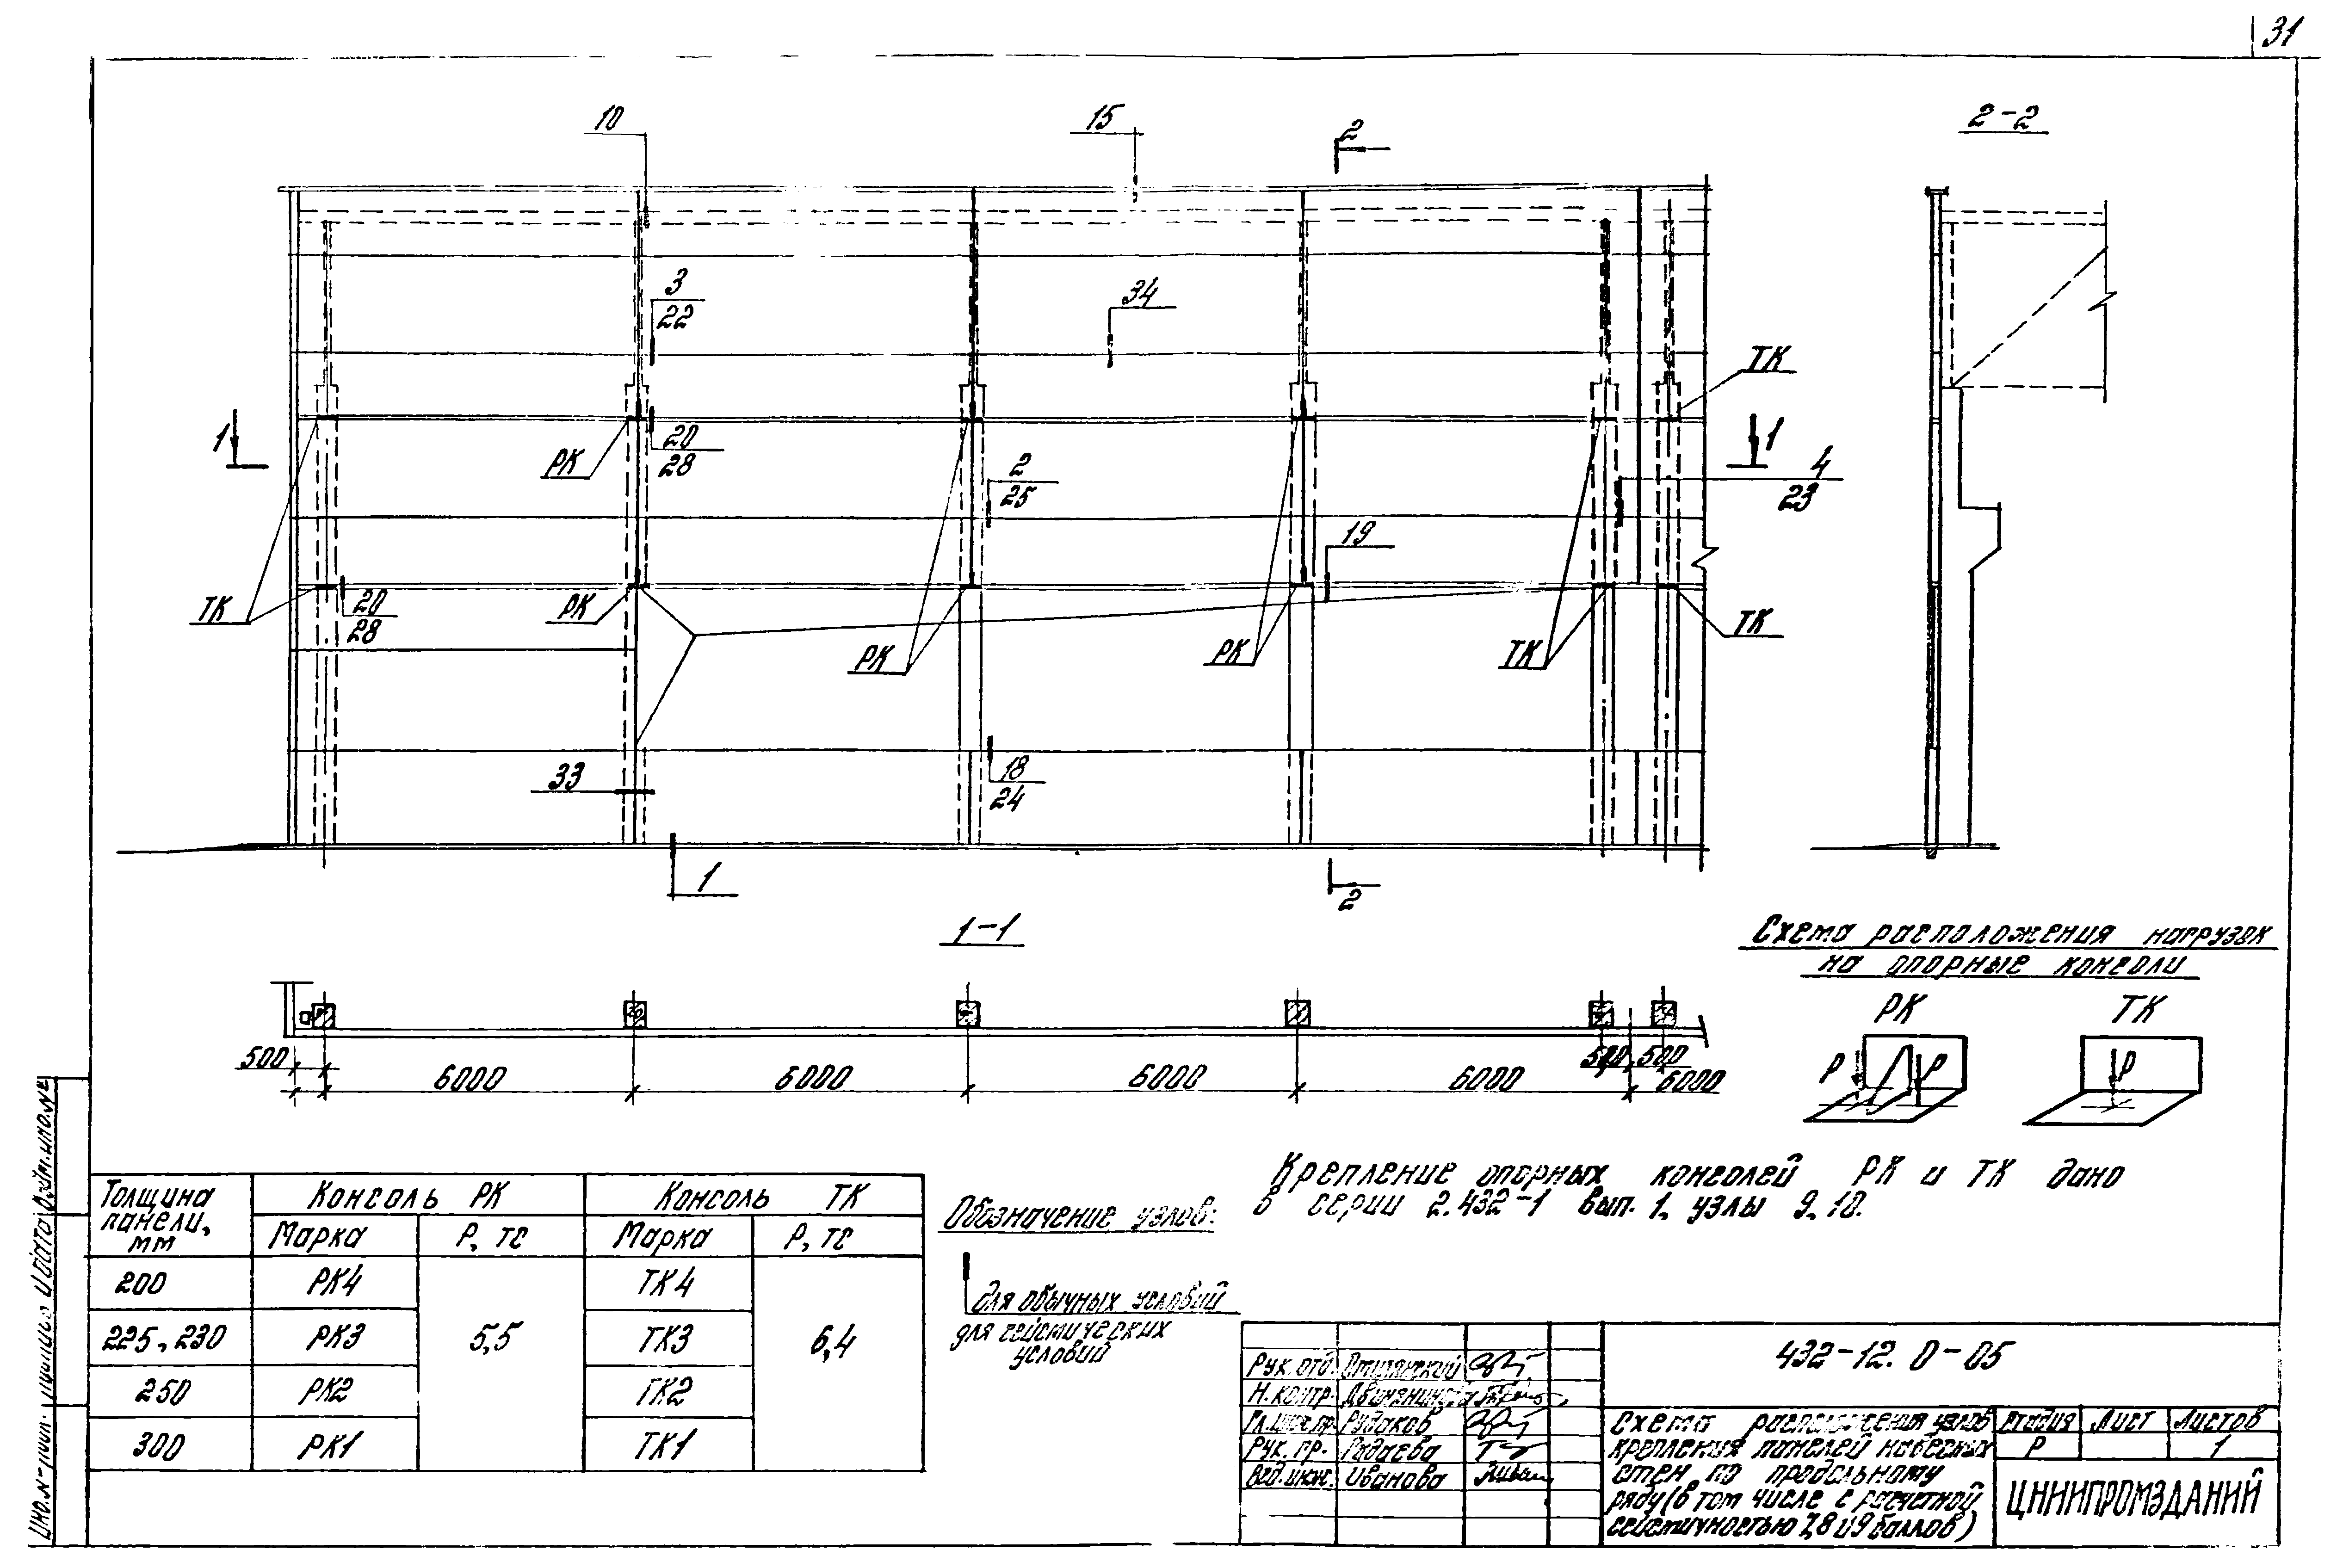 31
10
15
2
2-2
3
22
34
ТК
1
РК
20
28
2
25
1
4
23
19
ТК
20
28
РК
РК
РК
ТК
ТК
33
18
24
1
2
1-1
500
6000
6000
6000
6000
500
500
6000
Схема расположения нагрузок
на опорные консоли
РК
ТК
Р
Р
Р
Крепление опорных консолей РК и ТК дано
в серии 2.432-1 вып. 1, узлы 9, 10.
Толщина панели, мм
Консоль РК
Консоль ТК
Марка
Р, тс
Марка
Р, тс
200
РК4
ТК4
225, 230
РК3
5,5
ТК3
6,4
250
РК2
ТК2
300
РК1
ТК1
Обозначение узлов:
для обычных условий
для сейсмических
условий
432-12. 0-05
Рук. отд.
Н. контр.
Гл. инж. пр. Рудаков
Рук. пр. Радаева
Вед. инж. Иванова
Схема расположения узлов
крепления панелей навесных
стен по продольному
ряду (в том числе с расчетной
сейсмичностью 7, 8 и 9 баллов)
Стадия
Лист
Листов
Р
1
ЦНИИПРОМЗДАНИЙ